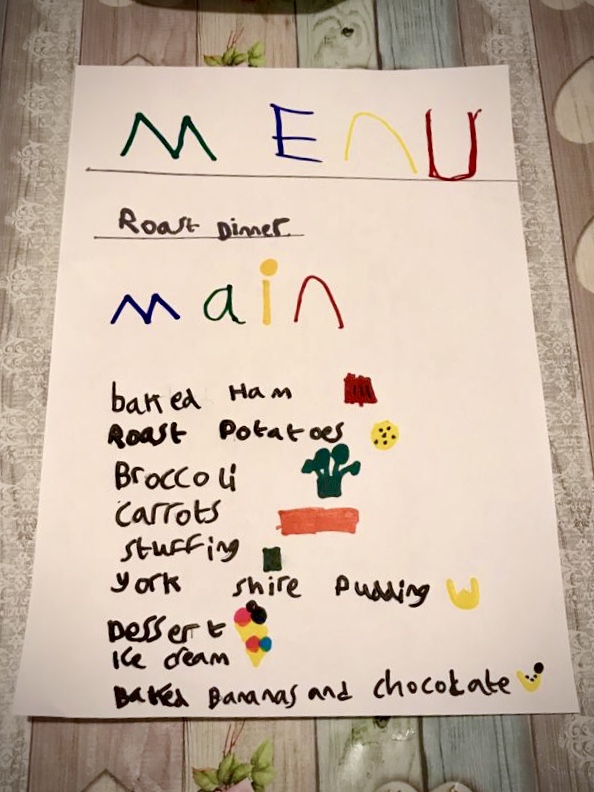 MEnU
Roast Dinner
main
baked Ham
Roast Potatoes
Broccoli
carrots
stuffing
york shire Pudding
Dessert
Ice cream
Baked Bananas and chocotate